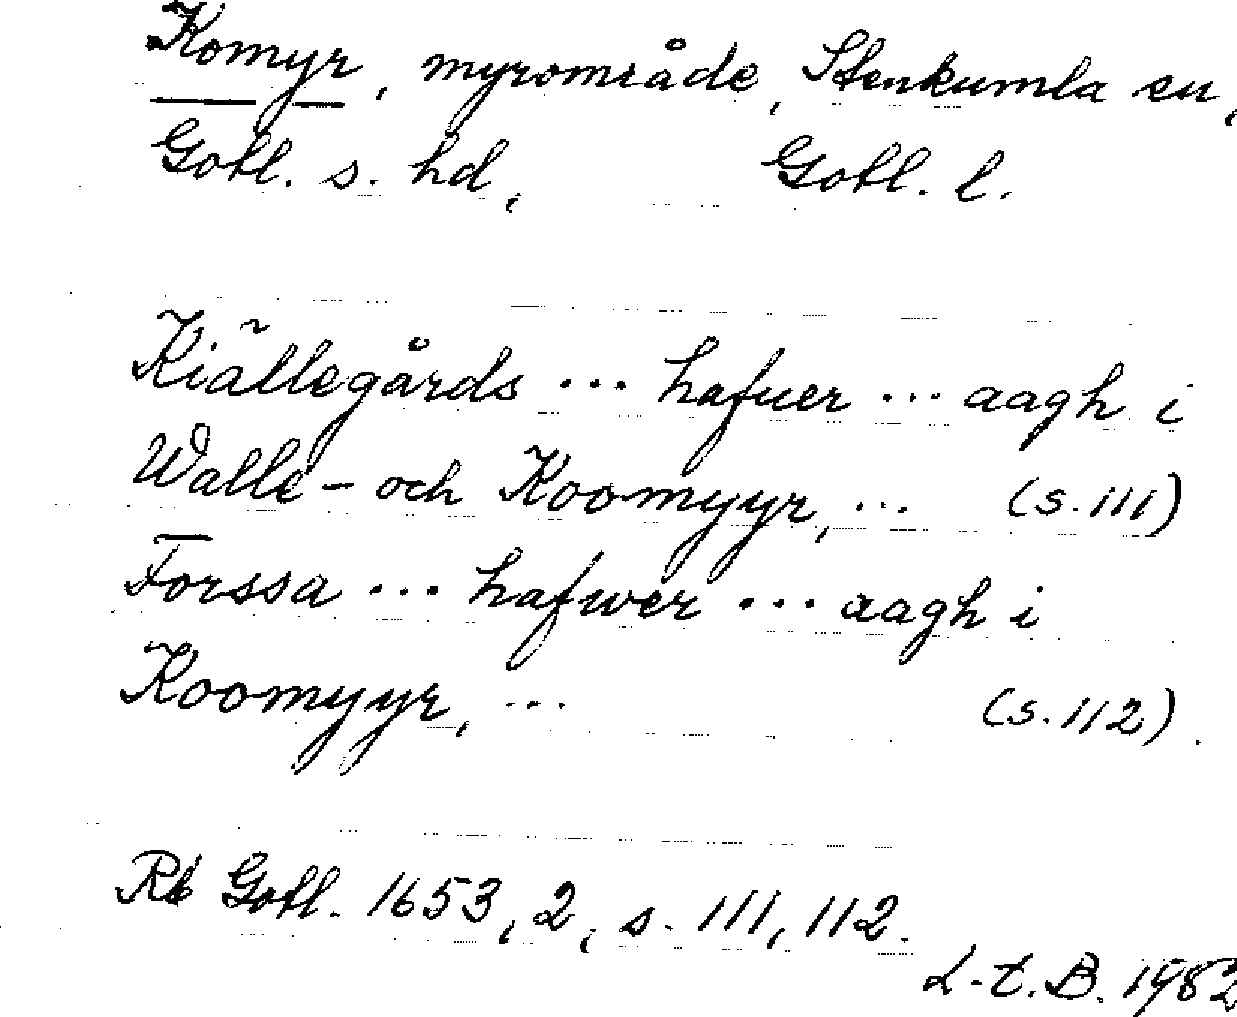 Komyr, myrområde, Stenkumla sn,
Gotl. s. hd, Gotl. l.
Kiällegårds ... hafuer ... aagh i
Walle- och Koomyyr, ... (s. 111)
Forssa ... hafwer ... aagh i
Koomyyr, ... (s. 112).
Rb Gotl. 1653, 2, s. 111, 112.
L-t. B. 1982